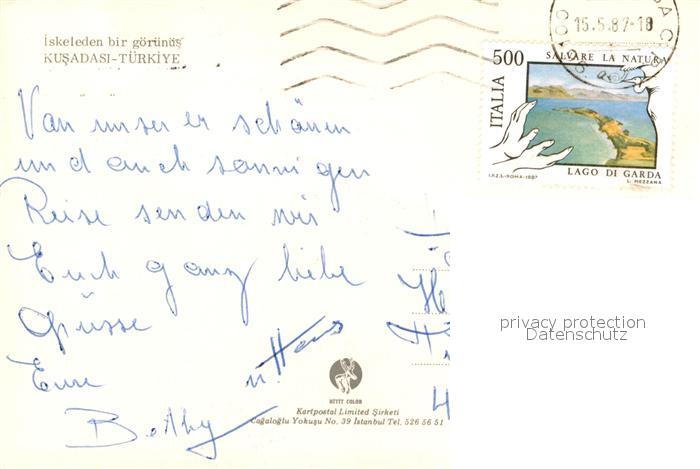 İskeleden bir görünüş
KUŞADASI-TÜRKİYE
15.5.87-18
500
SALVARE LA NATURA
ITALIA
I.P.Z.S.-ROMA-1987
LAGO DI GARDA
L. MEZZANA
Von unserer schönen
und auch sonnigen
Reise senden wir
Euch ganz liebe
Grüsse
Eure
u. Hans
Bethy
privacy protection
Datenschutz
HITIT COLOR
Kartpostal Limited Şirketi
Cağaloğlu Yokuşu No. 39 İstanbul Tel. 526 56 51